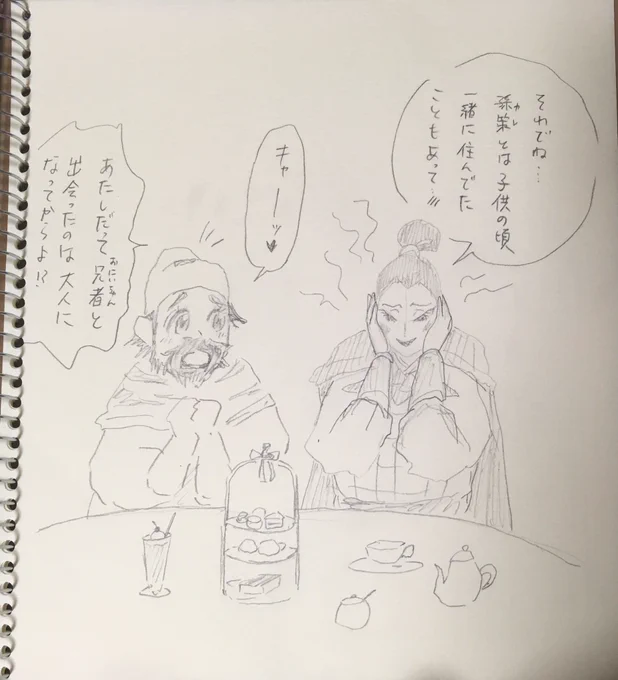 それでね…
孫策とは子供の頃
カレ
一緒に住んでた
こともあって…!!!
キャーッ♥
あたしだって兄者と
おにいちゃん
出会ったのは大人に
なってからよ!?